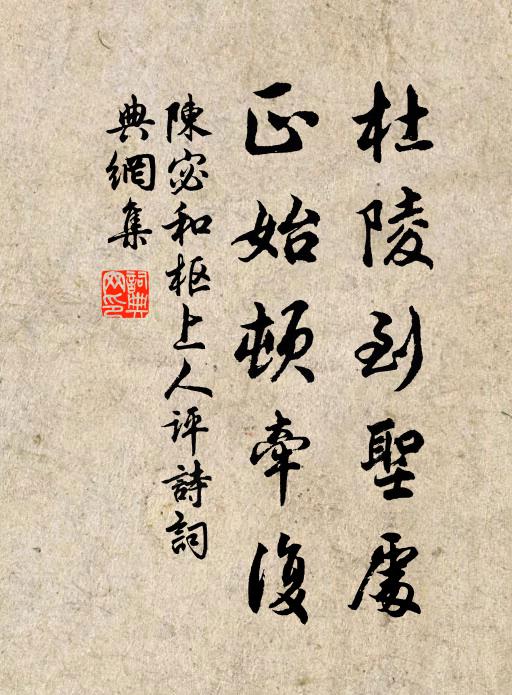 杜陵到聖處
正始頓牽復
陳宓和柩上人評詩詞
典網集
詞典網印